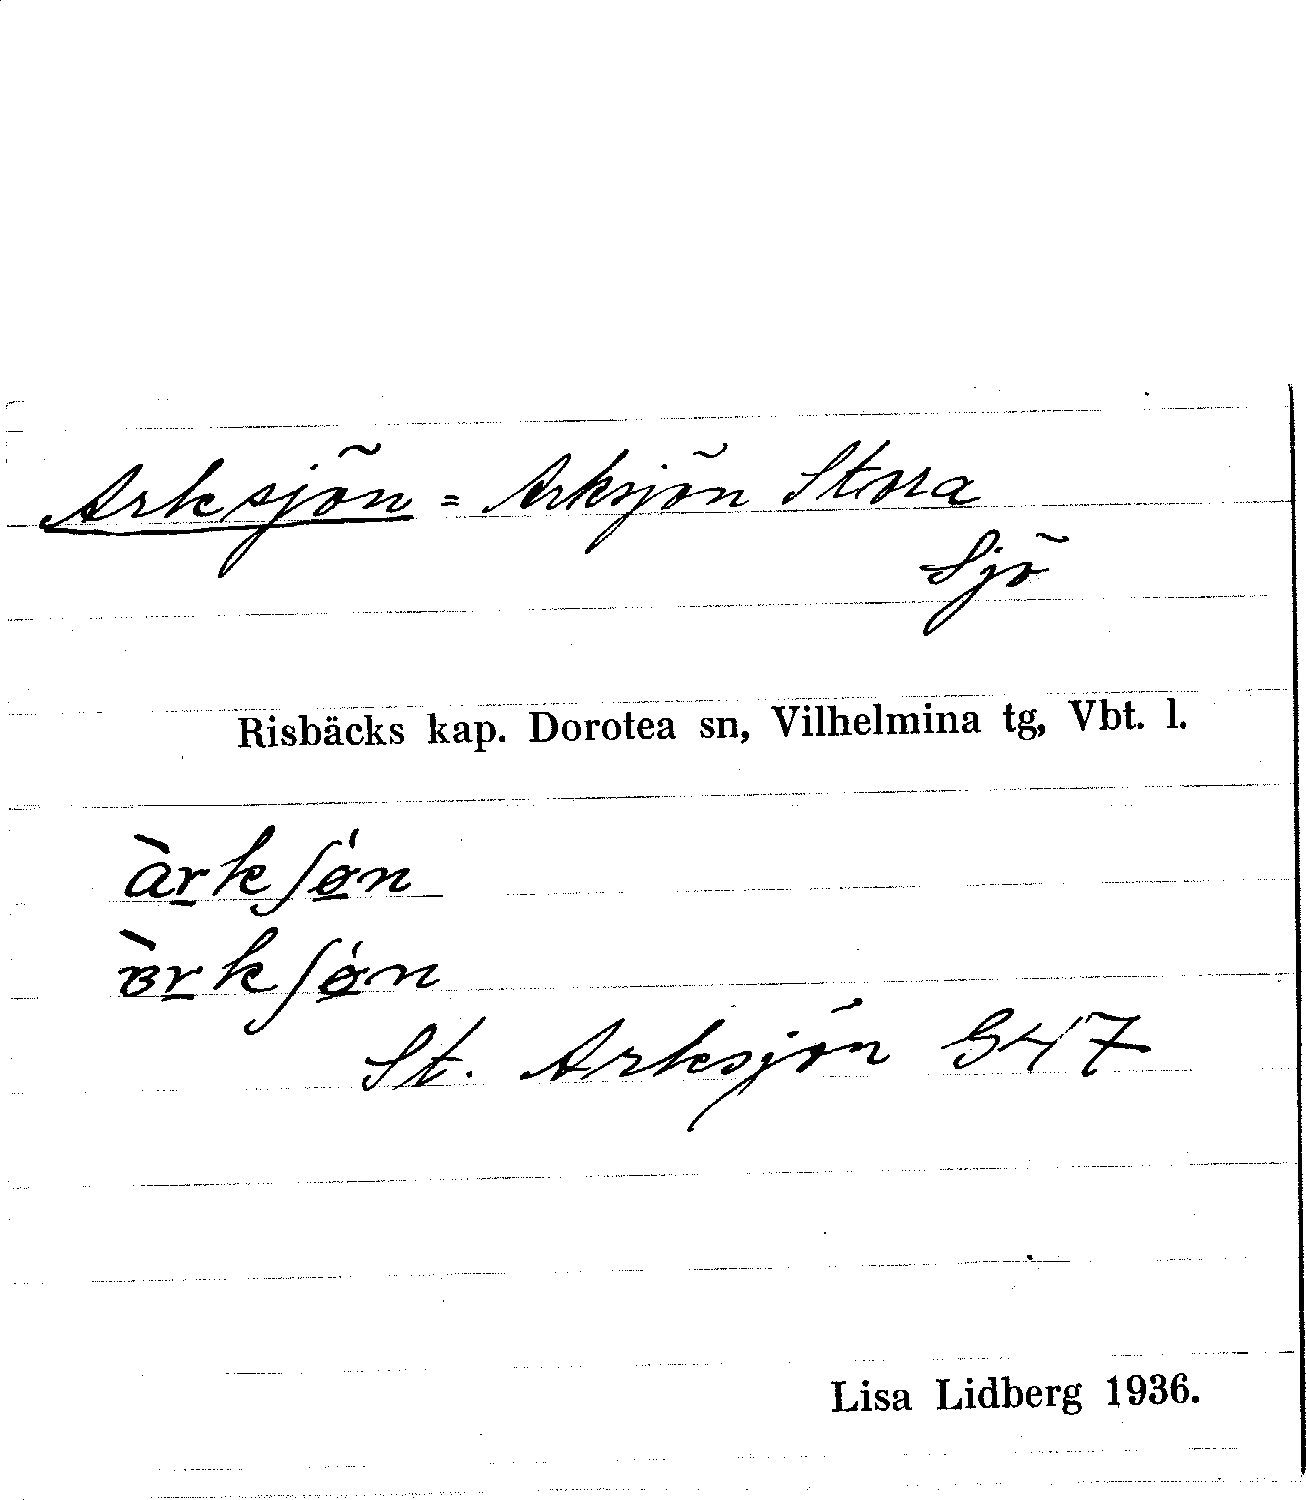 Arksjön = Arksjön Stora
Sjö
Risbäcks kap. Dorotea sn, Vilhelmina tg, Vbt. l.
àr̲kʃǿ̲n
ɞ̀r̲kʃǿ̲n
St. Arksjön G47
Lisa Lidberg 1936.